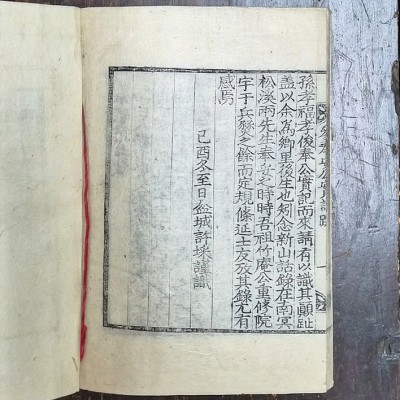 孫孝福孝俊奉公實記而來請有以識其顚趾
盖以余爲鄕里後生也矧念新山話錄在南冥
松溪兩先生奉安之時時吾祖竹庵公重修院
宇于兵燹之餘而定規條延士友放其錄尤有
感焉
己酉冬至日盆城許埰謹識